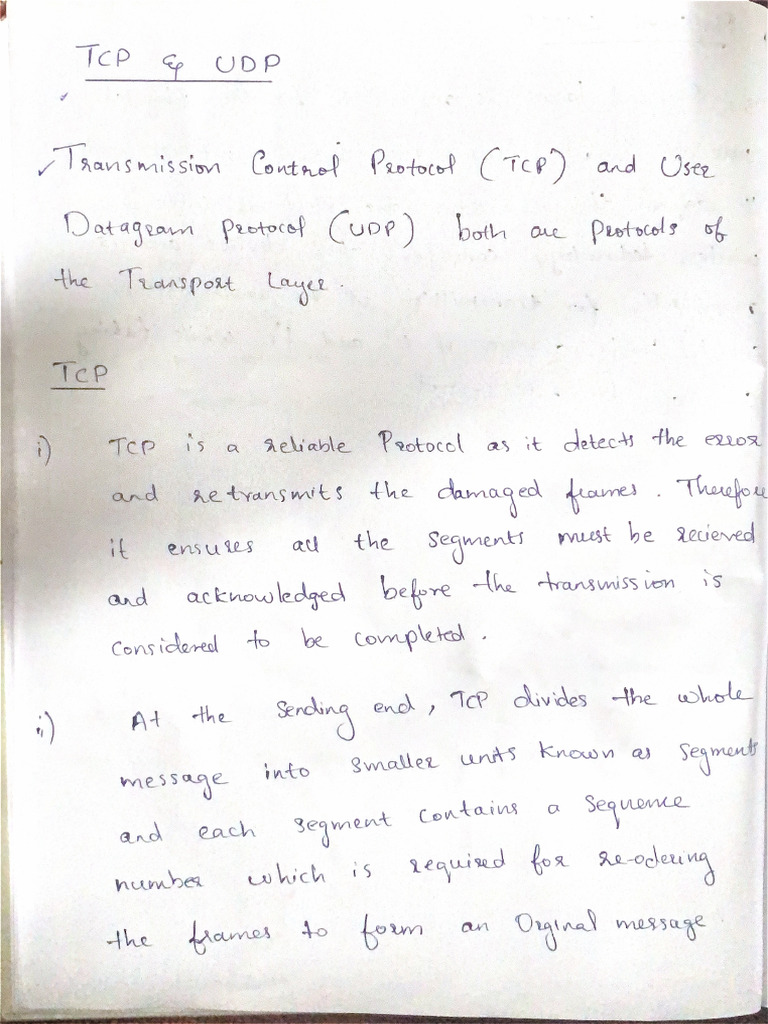 TCP & UDP
Transmission Control Protocol (TCP) and User
Datagram protocol (UDP) both are protocols of
the Transport Layer.
TCP
i) TCP is a reliable Protocol as it detects the error
and retransmits the damaged frames. Therefore
it ensures all the segments must be recieved
and acknowledged before the transmission is
considered to be completed.
ii) At the sending end, TCP divides the whole
message into smaller units known as segments
and each segment contains a sequence
number which is required for re-odering
the frames to form an Orginal message